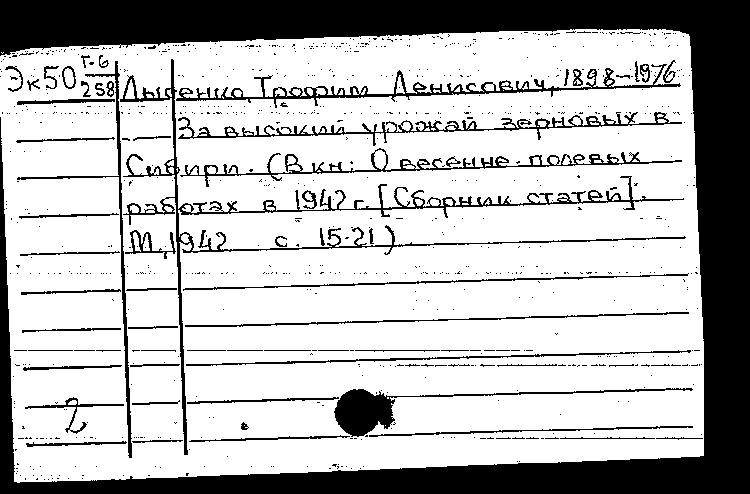 Эк50 Г-6
258
Лысенко, Трофим Денисович, 1898-1976
За высокий урожай зерновых в
Сибири. (В кн: О весенне-полевых
работах в 1942 г. [Сборник статей].
М, 1942 с. 15-21)
2